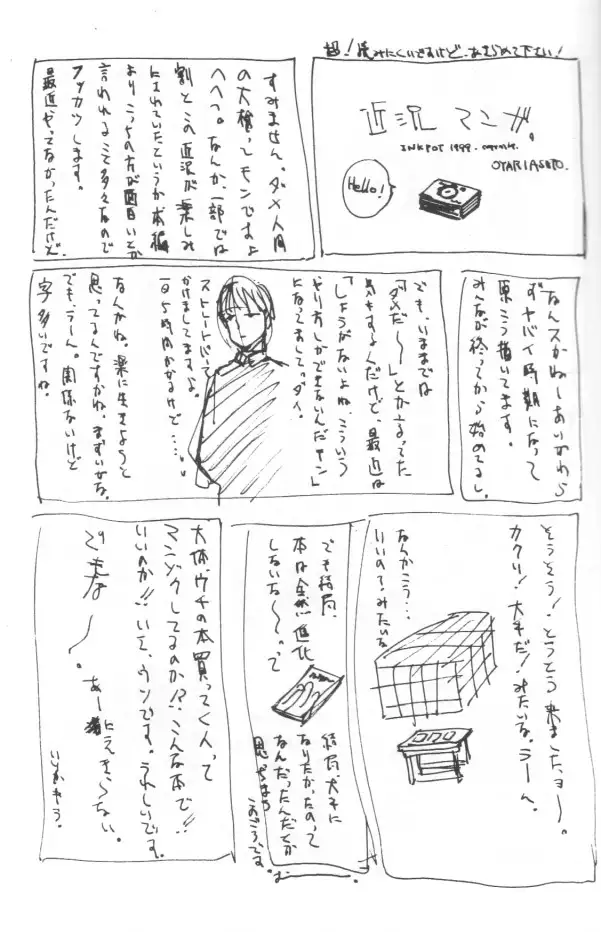 超！読みにくいですけど、あきらめて下さい！
近況マンガ。
INKPOT 1999.
OYARIASHITO.
Hello!
すみません。ダメ人間
の大槍ってモンですよ
へへっ。なんか、一部では
割とこの近況が楽しみ
にされていたというか本編
よりこっちの方が面白いとか
言われること多々なので
フッカツします。
最近やってなかったんだけど。
なんスかねーあいかわら
ずヤバイ時期になって
原こう描いてます。
みんなが終ってから始めてるし。
でも、いままでは
「ダメだ〜〜」とか言ってた
気もするんだけど、最近は
「しょうがないよね、こういう
やり方しかできないんだモン」
になってましてっダメ。
ストレートパーマ
かけましてますよ。
一日5時間かかるけど……。
なんかね。楽に生きようと
思ってるんですかね。まずいかな。
でも、うーん。関係ないけど
字多いですね。
そうそう！とうとう来ましたよ〜。
カクリ！大手だ！みたいな。うーん。
なんかこう…
いいので？みたいな
でも結局、
本は全然進化
しないな〜〜って
結局、大手に
なりたかったのって
なんだったんだとか
思っちまう
このごろです。
大体、ウチの本買ってく人って
マンゾクしてるのか!?こんな本で!!
いいのか!!いえ、ウソです。うれしいです。
でもな〜〜。